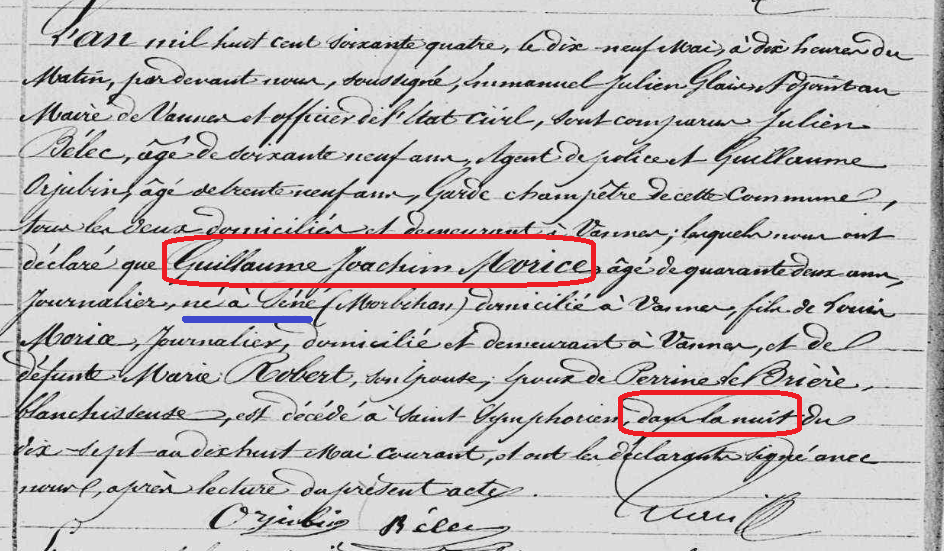 L'an mil huit cent soixante quatre, le dix-neuf Mai, à dix heures du
Matin, par devant nous, soussigné, Emmanuel Julien Glais Adjoint au
Maire de Vannes et officier de l'Etat Civil, sont comparus Julien
Bélec, âgé de soixante neuf ans, Agent de police et Guillaume
Orjubin, âgé de trente neuf ans, Garde champêtre de cette Commune,
tous les deux domiciliés et demeurant à Vannes; lesquels nous ont
déclaré que Guillaume Joachim Morice, âgé de quarante deux ans,
Journalier, né à Séné (Morbihan) domicilié à Vannes, fils de Louis
Morice, Journalier, domicilié et demeurant à Vannes, et de
défunte Marie Robert, son épouse; époux de Perrine Le Brière,
blanchisseuse, est décédé à Saint Symphorien, dans la nuit du
dix-sept au dix huit Mai courant, et ont les déclarants signé avec
nous, après lecture du présent acte.
Orjubin Bélec